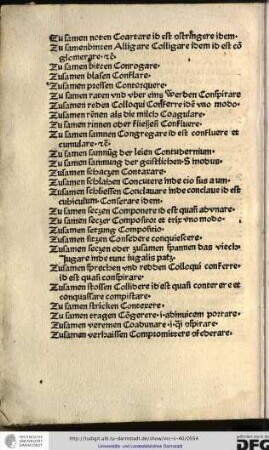 Zu samen noten Coartare id est ostringere idem.
Zu samenbinten Alligare Colligare idem id est cō
glomerare ⁊c̄.
Zu samen bitten Conrogare.
Zu samen blasen Conflare.
Zu samen pressen Contorquere.
Zu samen raten vnd vber eins werben Conspirare
Zu samen reden Colloqui Conferre idē vno modo.
Zu samen rēnen als die milch Coagulare.
Zu samen rinnen ober fliessen Confluere.
Zu samen samnen Congregare id est confluere et
cumulare ⁊c̄.
Zu samen samnūg der leien Contubernium.
Zu samen samnung der geistlichen Sinodus
Zu samen schaczen Contaxare.
Zu samen schlahen Concutere
Zu samen schliessen Conclauare inde conclaue id est
cubiculum Conserare idem.
Zu samen seczen Componere id est quasi adunare.
Zu samen seczer Compositor et trix vno modo.
Zu samen setzung Compositio.
Zu samen sitzen Considere conquiescere.
Zu samen seczen ober zusamen spannen das viech
Iugare inde iugalis
Zu samen sprechen vnd redden Colloqui conferre
id est quasi conspirare.
Zu samen stossen Collidere id est quasi conterere et
conquassare compistare
Zu samen stricken Contexere.
Zu samen tragen Cōgerere ad inuicem portare.
Zu samen veremen Coadunare
Zu samen verhaissen Compromittere
http://tudigit.ulb.tu-darmstadt.de/show/inc-iv-40/0554
Universitäts- und Landesbibliothek Darmstadt
DFG